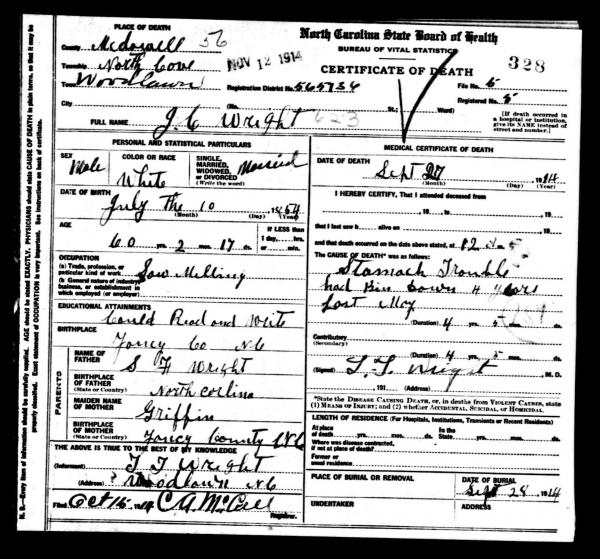 North Carolina State Board of Health
BUREAU OF VITAL STATISTICS
CERTIFICATE OF DEATH
328
NOV 12 1914
PLACE OF DEATH
County McDowell 56
Township North Cove
Town Woodlawn
Registration District No. 565734
File No. 5
Registered No. 5
City (No. St.; Ward)
[If death occurred in a hospital or institution, give its NAME instead of street and number.]
FULL NAME J. C Wright 623
PERSONAL AND STATISTICAL PARTICULARS
SEX Male
COLOR OR RACE White
SINGLE, MARRIED, WIDOWED, OR DIVORCED (Write the word) Married
DATE OF BIRTH July The 10 1854
(Month) (Day) (Year)
AGE 60 yrs. 2 mos. 17 ds.
If LESS than 1 day, hrs. or min.
OCCUPATION
(a) Trade, profession, or particular kind of work Saw Milling
(b) General nature of industry, business, or establishment in which employed (or employer)
EDUCATIONAL ATTAINMENTS
Could Read and Write
BIRTHPLACE Yancy Co NC
PARENTS
NAME OF FATHER S H Wright
BIRTHPLACE OF FATHER (State or Country) North Corlina
MAIDEN NAME OF MOTHER Griffin
BIRTHPLACE OF MOTHER (State or Country) Yancy County N C
THE ABOVE IS TRUE TO THE BEST OF MY KNOWLEDGE
(Informant) T T Wright
(Address) Woodlawn NC
Filed Oct 15 1914 C A McCall
Registrar.
MEDICAL CERTIFICATE OF DEATH
DATE OF DEATH
Sept 27 1914
(Month) (Day) (Year)
I HEREBY CERTIFY, That I attended deceased from
, 19 , to , 19 ,
that I last saw h alive on , 19 ,
and that death occurred on the date stated above, at 12
The CAUSE OF DEATH* was as follows:
Stomach Trouble
had Bin Down 4 Years
Last May
(Duration) 4 yrs. 5 mos. ds.
Contributory
(Secondary)
(Duration) 4 yrs. 5 mos. ds.
(Signed) T. T. Wright , M.D.
, 191 (Address)
*State the DISEASE CAUSING DEATH, or, in deaths from VIOLENT CAUSES, state (1) MEANS OF INJURY; and (2) whether ACCIDENTAL, SUICIDAL, or HOMICIDAL.
LENGTH OF RESIDENCE (For Hospitals, Institutions, Transients or Recent Residents)
At place of death yrs. mos. ds. In the State yrs. mos. ds.
Where was disease contracted, if not at place of death?
Former or usual residence
PLACE OF BURIAL OR REMOVAL
DATE OF BURIAL
Sept 28 1914
UNDERTAKER
ADDRESS
N. B.—Every item of information should be carefully supplied. AGE should be stated EXACTLY. PHYSICIANS should state CAUSE OF DEATH in plain terms, so that it may be properly classified. Exact statement of OCCUPATION is very important. See instructions on back of certificate.